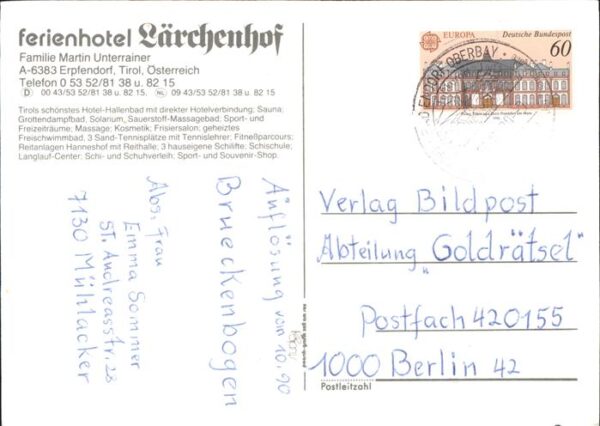 ferienhotel Lärchenhof
Familie Martin Unterrainer
A-6383 Erpfendorf, Tirol, Österreich
Telefon 0 53 52/81 38 u. 82 15
D 00 43/53 52/81 38 u. 82 15. NL 09 43/53 52/81 38 u. 82 15
Tirols schönstes Hotel-Hallenbad mit direkter Hotelverbindung; Sauna;
Grottendampfbad, Solarium, Sauerstoff-Massagebad, Sport- und
Freizeiträume; Massage; Kosmetik; Frisiersalon; geheiztes
Freischwimmbad, 3 Sand-Tennisplätze mit Tennislehrer; Fitneßparcours;
Reitanlagen Hanneshof mit Reithalle; 3 hauseigene Skilifte; Schischule;
Langlauf-Center: Schi- und Schuhverleih: Sport- und Souvenir-Shop.
EUROPA Deutsche Bundespost
60
OBERBAY
Auflösung vom 10.90
Brueckenbogen
Abs. Frau
Emma Sommer
St. Andreasstr. 28
7130 Mühlacker
Verlag Bildpost
Abteilung „Goldrätsel"
Postfach 420155
1000 Berlin 42
Postleitzahl